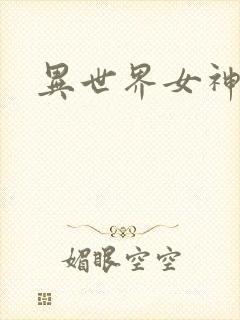 異世界女神
媚眼空空